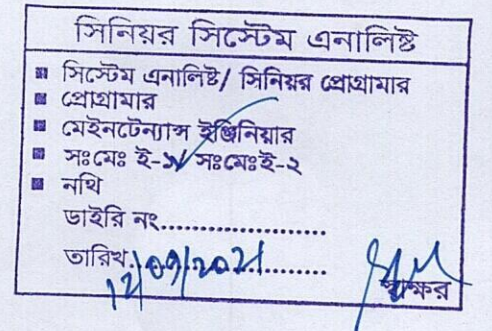 সিনিয়র সিস্টেম এনালিষ্ট
সিস্টেম এনালিষ্ট/ সিনিয়র প্রোগ্রামার
প্রোগ্রামার
মেইনটেন্যান্স ইঞ্জিনিয়ার
সঃমেঃ ই-১/ সঃমেঃই-২
নথি
ডাইরি নং..................
তারিখ..12/09/2021..........
স্বাক্ষর